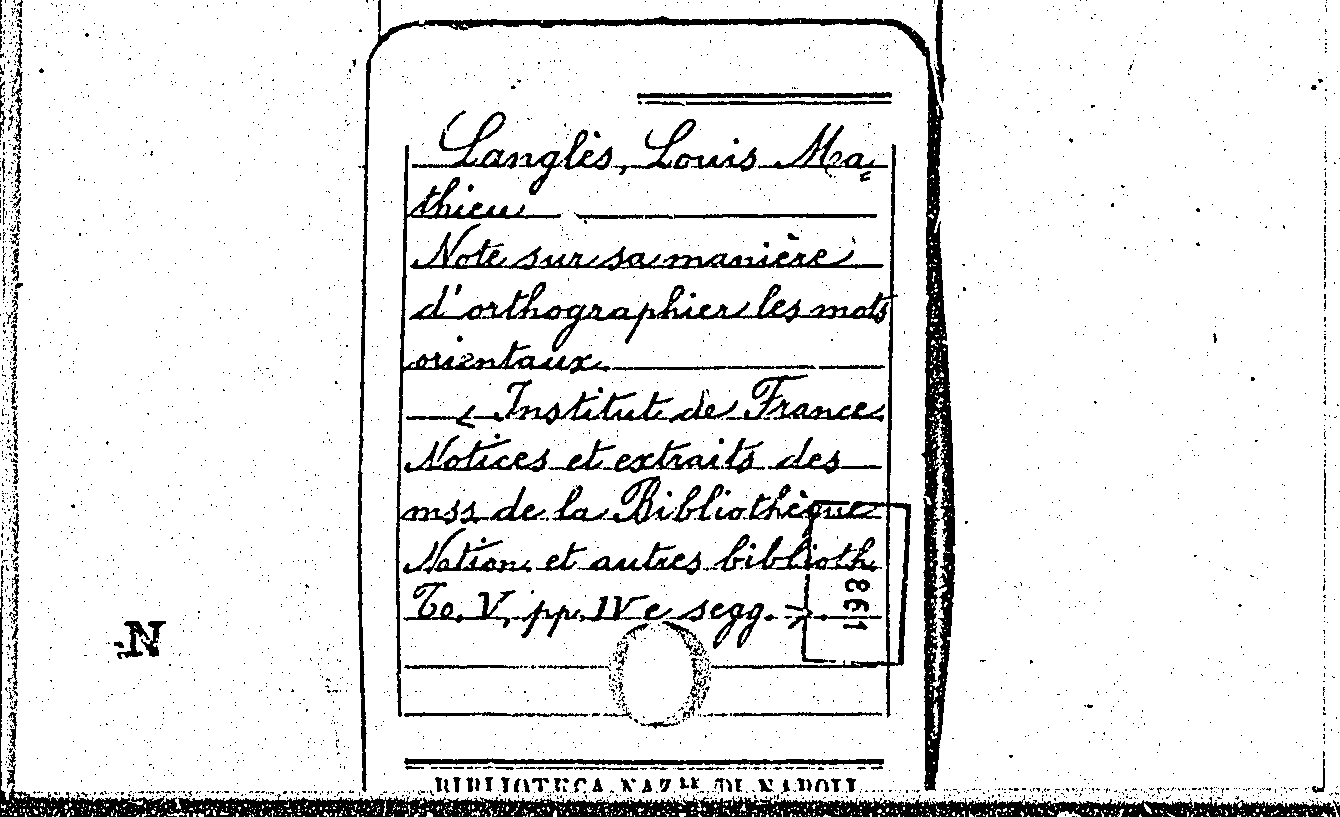 Langlès, Louis Ma=
thieu
Note sur sa manière
d'orthographier les mots
orientaux.
< Institut de France
Notices et extraits des
mss. de la Bibliothèque
Nation. et autres biblioth.
To. V, pp. IV e segg. >
861
N.
BIBLIOTECA NAZ.LE DI NAPOLI